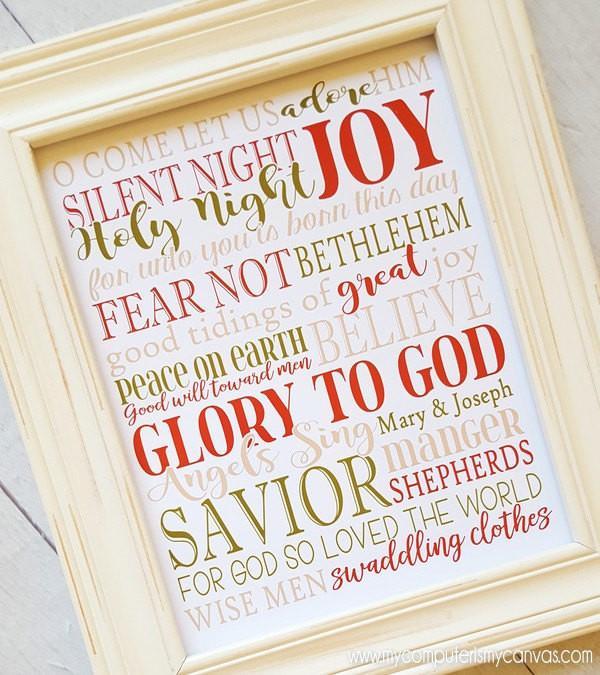 O COME LET US adore HIM
SILENT NIGHT JOY
Holy Night
for unto you is born this day
FEAR NOT BETHLEHEM
good tidings of great joy
Peace on earth BELIEVE
Good will toward men
GLORY TO GOD
Angels Sing Mary & Joseph
manger
SAVIOR SHEPHERDS
FOR GOD SO LOVED THE WORLD
WISE MEN swaddling clothes
www.mycomputerismycanvas.com